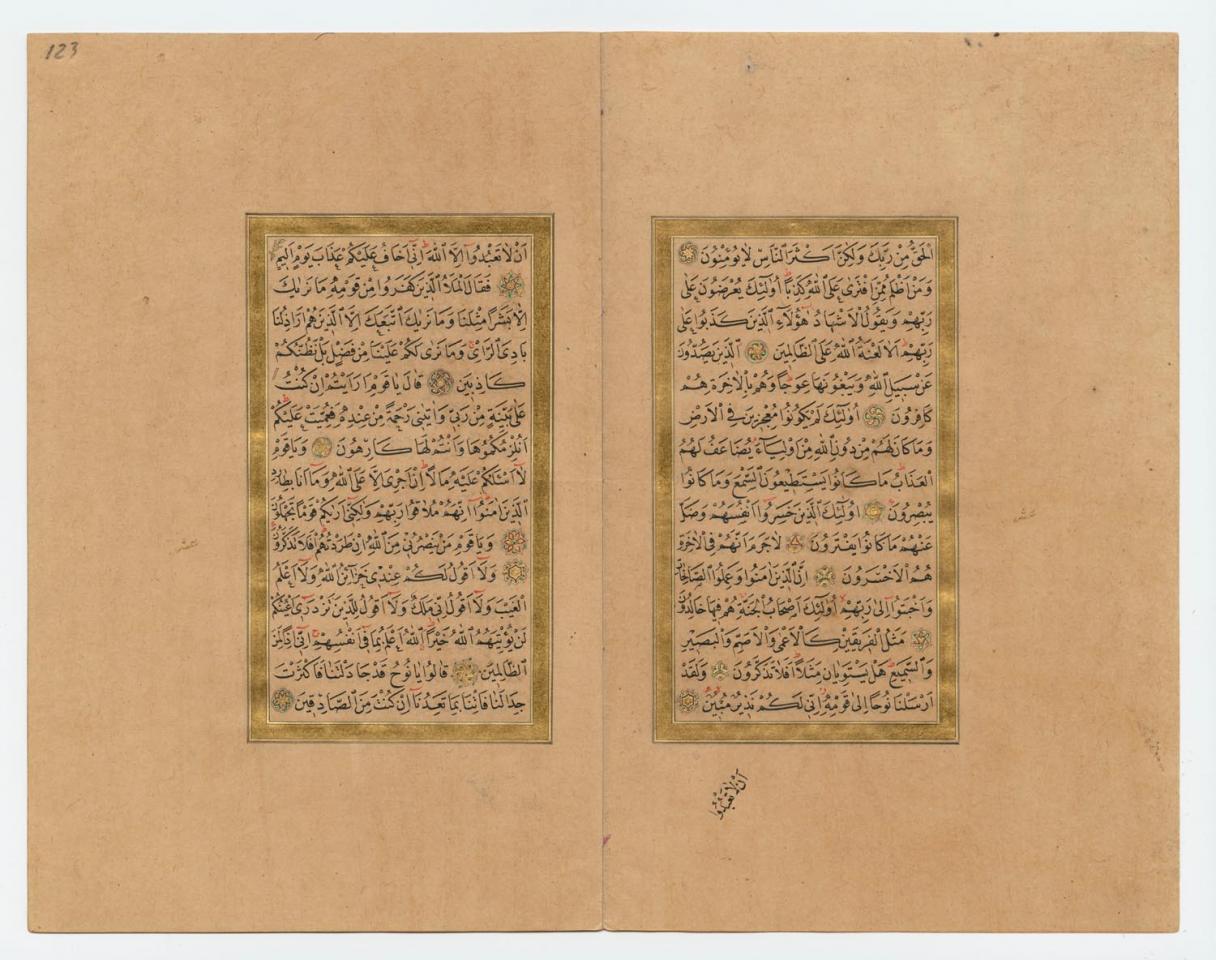 اَلْحَقُّ مِنْ رَبِّكَ وَلٰكِنَّ اَكْثَرَ النَّاسِ لَا يُؤْمِنُونَ
وَمَنْ اَظْلَمُ مِمَّنِ افْتَرٰى عَلَى اللّٰهِ كَذِبًا اُولٰئِكَ يُعْرَضُونَ عَلٰى
رَبِّهِمْ وَيَقُولُ الْاَشْهَادُ هٰؤُلَاءِ الَّذِينَ كَذَبُوا عَلٰى
رَبِّهِمْ اَلَا لَعْنَةُ اللّٰهِ عَلَى الظَّالِمِينَ اَلَّذِينَ يَصُدُّونَ
عَنْ سَبِيلِ اللّٰهِ وَيَبْغُونَهَا عِوَجًا وَهُمْ بِالْاٰخِرَةِ هُمْ
كَافِرُونَ اُولٰئِكَ لَمْ يَكُونُوا مُعْجِزِينَ فِي الْاَرْضِ
وَمَا كَانَ لَهُمْ مِنْ دُونِ اللّٰهِ مِنْ اَوْلِيَاءَ يُضَاعَفُ لَهُمُ
الْعَذَابُ مَا كَانُوا يَسْتَطِيعُونَ السَّمْعَ وَمَا كَانُوا
يُبْصِرُونَ اُولٰئِكَ الَّذِينَ خَسِرُوا اَنْفُسَهُمْ وَضَلَّ
عَنْهُمْ مَا كَانُوا يَفْتَرُونَ لَا جَرَمَ اَنَّهُمْ فِي الْاٰخِرَةِ
هُمُ الْاَخْسَرُونَ اِنَّ الَّذِينَ اٰمَنُوا وَعَمِلُوا الصَّالِحَاتِ
وَاَخْبَتُوا اِلٰى رَبِّهِمْ اُولٰئِكَ اَصْحَابُ الْجَنَّةِ هُمْ فِيهَا خَالِدُونَ
مَثَلُ الْفَرِيقَيْنِ كَالْاَعْمٰى وَالْاَصَمِّ وَالْبَصِيرِ
وَالسَّمِيعِ هَلْ يَسْتَوِيَانِ مَثَلًا اَفَلَا تَذَكَّرُونَ وَلَقَدْ
اَرْسَلْنَا نُوحًا اِلٰى قَوْمِهِ اِنِّي لَكُمْ نَذِيرٌ مُبِينٌ
اَنْ لَا تَعْبُدُوا
123
اَنْ لَا تَعْبُدُوا اِلَّا اللّٰهَ اِنِّي اَخَافُ عَلَيْكُمْ عَذَابَ يَوْمٍ اَلِيمٍ
فَقَالَ الْمَلَاُ الَّذِينَ كَفَرُوا مِنْ قَوْمِهِ مَا نَرٰيكَ
اِلَّا بَشَرًا مِثْلَنَا وَمَا نَرٰيكَ اتَّبَعَكَ اِلَّا الَّذِينَ هُمْ اَرَاذِلُنَا
بَادِيَ الرَّاْيِ وَمَا نَرٰى لَكُمْ عَلَيْنَا مِنْ فَضْلٍ بَلْ نَظُنُّكُمْ
كَاذِبِينَ قَالَ يَا قَوْمِ اَرَاَيْتُمْ اِنْ كُنْتُ
عَلٰى بَيِّنَةٍ مِنْ رَبِّي وَاٰتٰينِي رَحْمَةً مِنْ عِنْدِهِ فَعُمِّيَتْ عَلَيْكُمْ
اَنُلْزِمُكُمُوهَا وَاَنْتُمْ لَهَا كَارِهُونَ وَيَا قَوْمِ
لَا اَسْئَلُكُمْ عَلَيْهِ مَالًا اِنْ اَجْرِيَ اِلَّا عَلَى اللّٰهِ وَمَا اَنَا بِطَارِدِ
الَّذِينَ اٰمَنُوا اِنَّهُمْ مُلَاقُوا رَبِّهِمْ وَلٰكِنِّي اَرٰيكُمْ قَوْمًا تَجْهَلُونَ
وَيَا قَوْمِ مَنْ يَنْصُرُنِي مِنَ اللّٰهِ اِنْ طَرَدْتُهُمْ اَفَلَا تَذَكَّرُونَ
وَلَا اَقُولُ لَكُمْ عِنْدِي خَزَائِنُ اللّٰهِ وَلَا اَعْلَمُ
الْغَيْبَ وَلَا اَقُولُ اِنِّي مَلَكٌ وَلَا اَقُولُ لِلَّذِينَ تَزْدَرِي اَعْيُنُكُمْ
لَنْ يُؤْتِيَهُمُ اللّٰهُ خَيْرًا اَللّٰهُ اَعْلَمُ بِمَا فِي اَنْفُسِهِمْ اِنِّي اِذًا لَمِنَ
الظَّالِمِينَ قَالُوا يَا نُوحُ قَدْ جَادَلْتَنَا فَاَكْثَرْتَ
جِدَالَنَا فَاْتِنَا بِمَا تَعِدُنَا اِنْ كُنْتَ مِنَ الصَّادِقِينَ